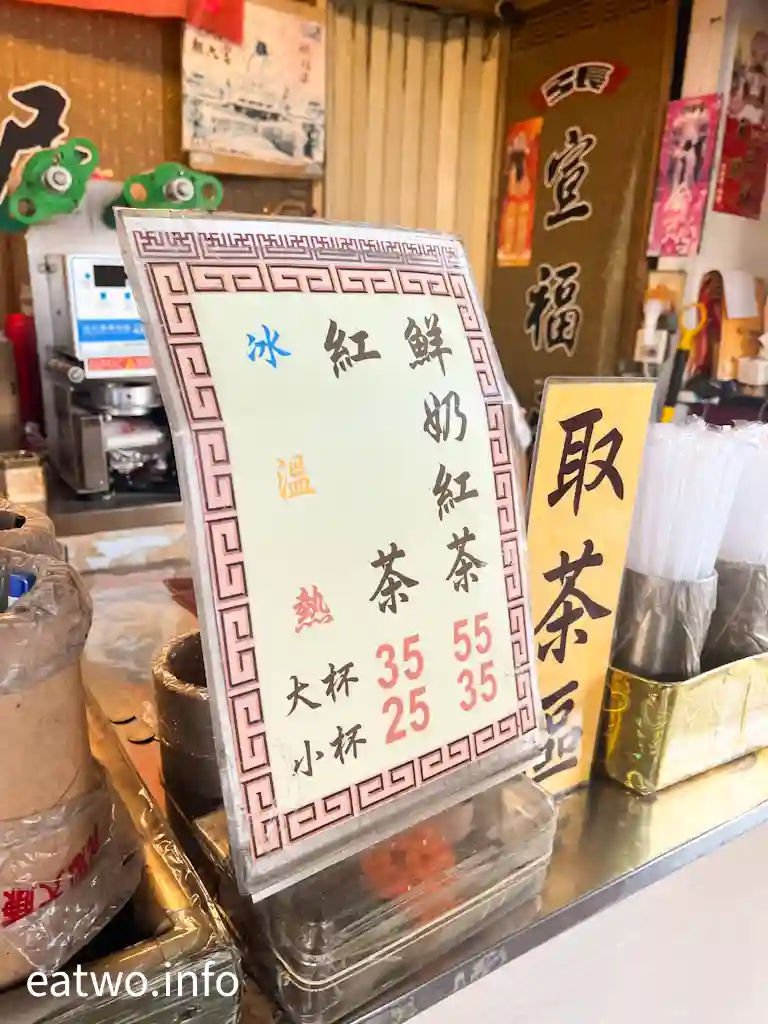 冰
溫
熱
紅茶
鮮奶紅茶
大杯 35 55
小杯 25 35
取茶區
宣福
eatwo.info